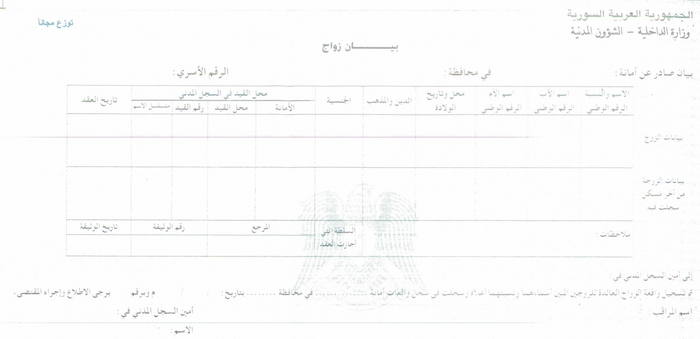 الجمهورية العربية السورية
وزارة الداخلية – الشؤون المدنية
توزع مجاناً
بيـــــــان زواج
بيان صادر عن أمانة: في محافظة: الرقم الأسري:
الاسم والنسبة الرقم الوطني
اسم الأب الرقم الوطني
اسم الأم الرقم الوطني
محل وتاريخ الولادة
الدين والمذهب
الجنسية
محل القيد في السجل المدني
الأمانة محل القيد رقم القيد
تاريخ العقد
بيانات الزوج
بيانات الزوجة من آخر مسكن سجلت فيه
ملاحظات:
السلطة التي أجازت العقد
المرجع
رقم الوثيقة
تاريخ الوثيقة
إلى أمين السجل المدني في
تم تسجيل واقعة الزواج العائدة للزوجين المبين أسماءهما ونسبتهما أعلاه وسجلت في سجل واقعات أمانة ........ في محافظة ........ بتاريخ / / م وبرقم يرجى الاطلاع وإجراء المقتضى.
اسم المراقب : أمين السجل المدني في :
الاسم: